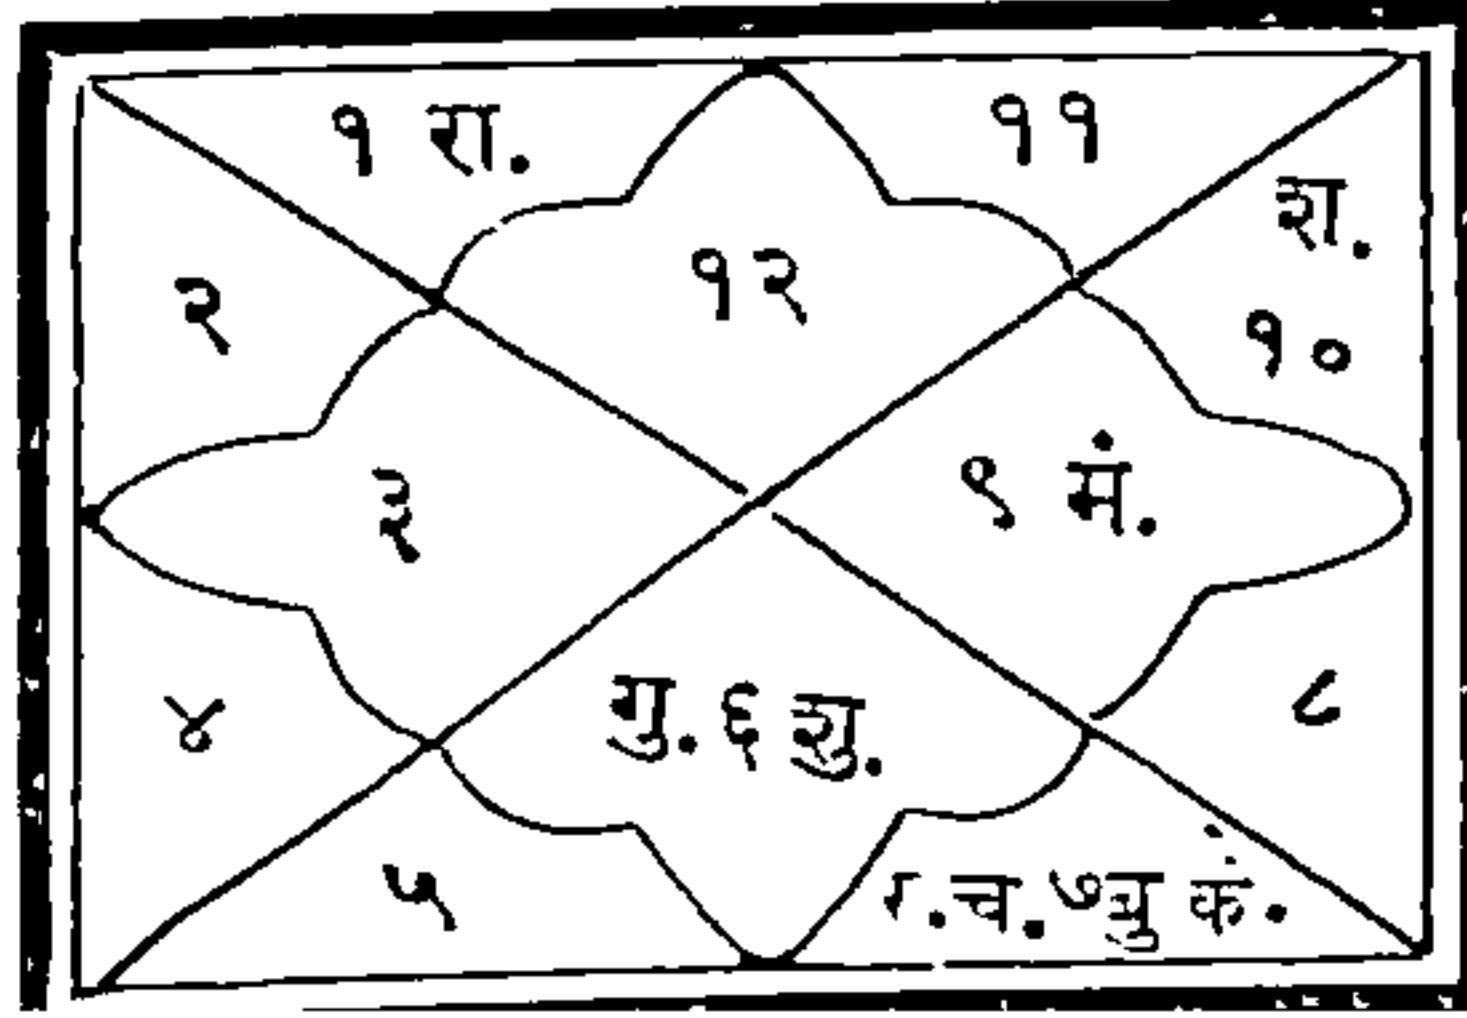 १ रा.
११
श.
१०
२
१२
३
९ मं.
४
गु. ६ शु.
८
५
र. च. ७ बु कें.